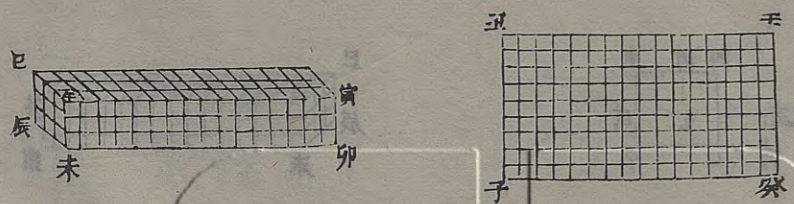 巳
午
寅
辰
未
卯
丑
壬
子
癸